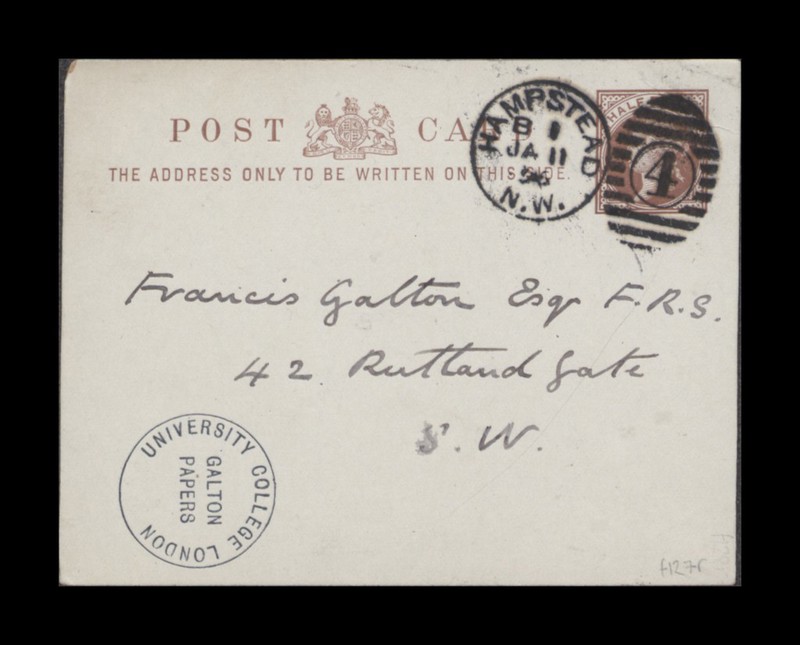 POST CARD
THE ADDRESS ONLY TO BE WRITTEN ON THIS SIDE.
HAMPSTEAD
B
JA 11
N.W.
HALF
4
Francis Galton Esqr F.R.S.
42 Rutland Gate
S.W.
UNIVERSITY COLLEGE LONDON
GALTON
PAPERS
f127r